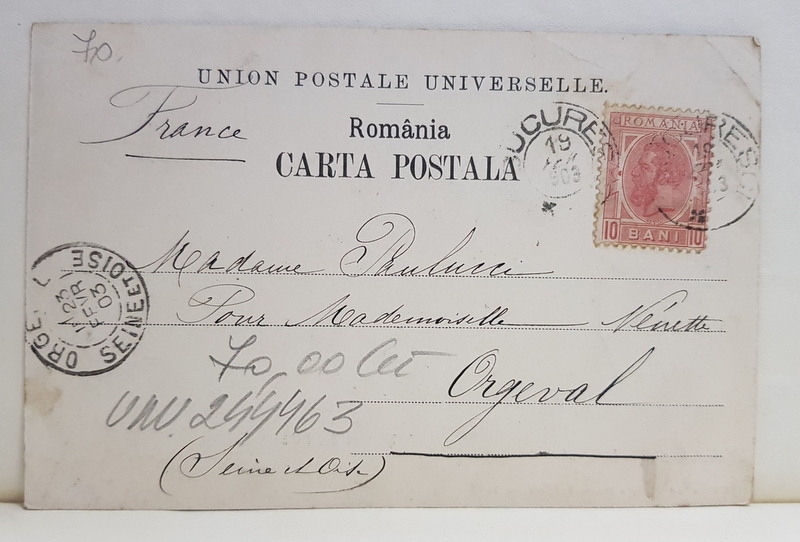 70.
UNION POSTALE UNIVERSELLE.
France
România
CARTA POSTALA
BUCURESCI
19
903
ROMANIA
10 BANI 10
Madame Paulucci
Pour Mademoiselle Nénette
ORGEVAL
SEINE ET OISE
23
FEVR
03
70,00 lei
Orgeval
244463
(Seine et Oise)